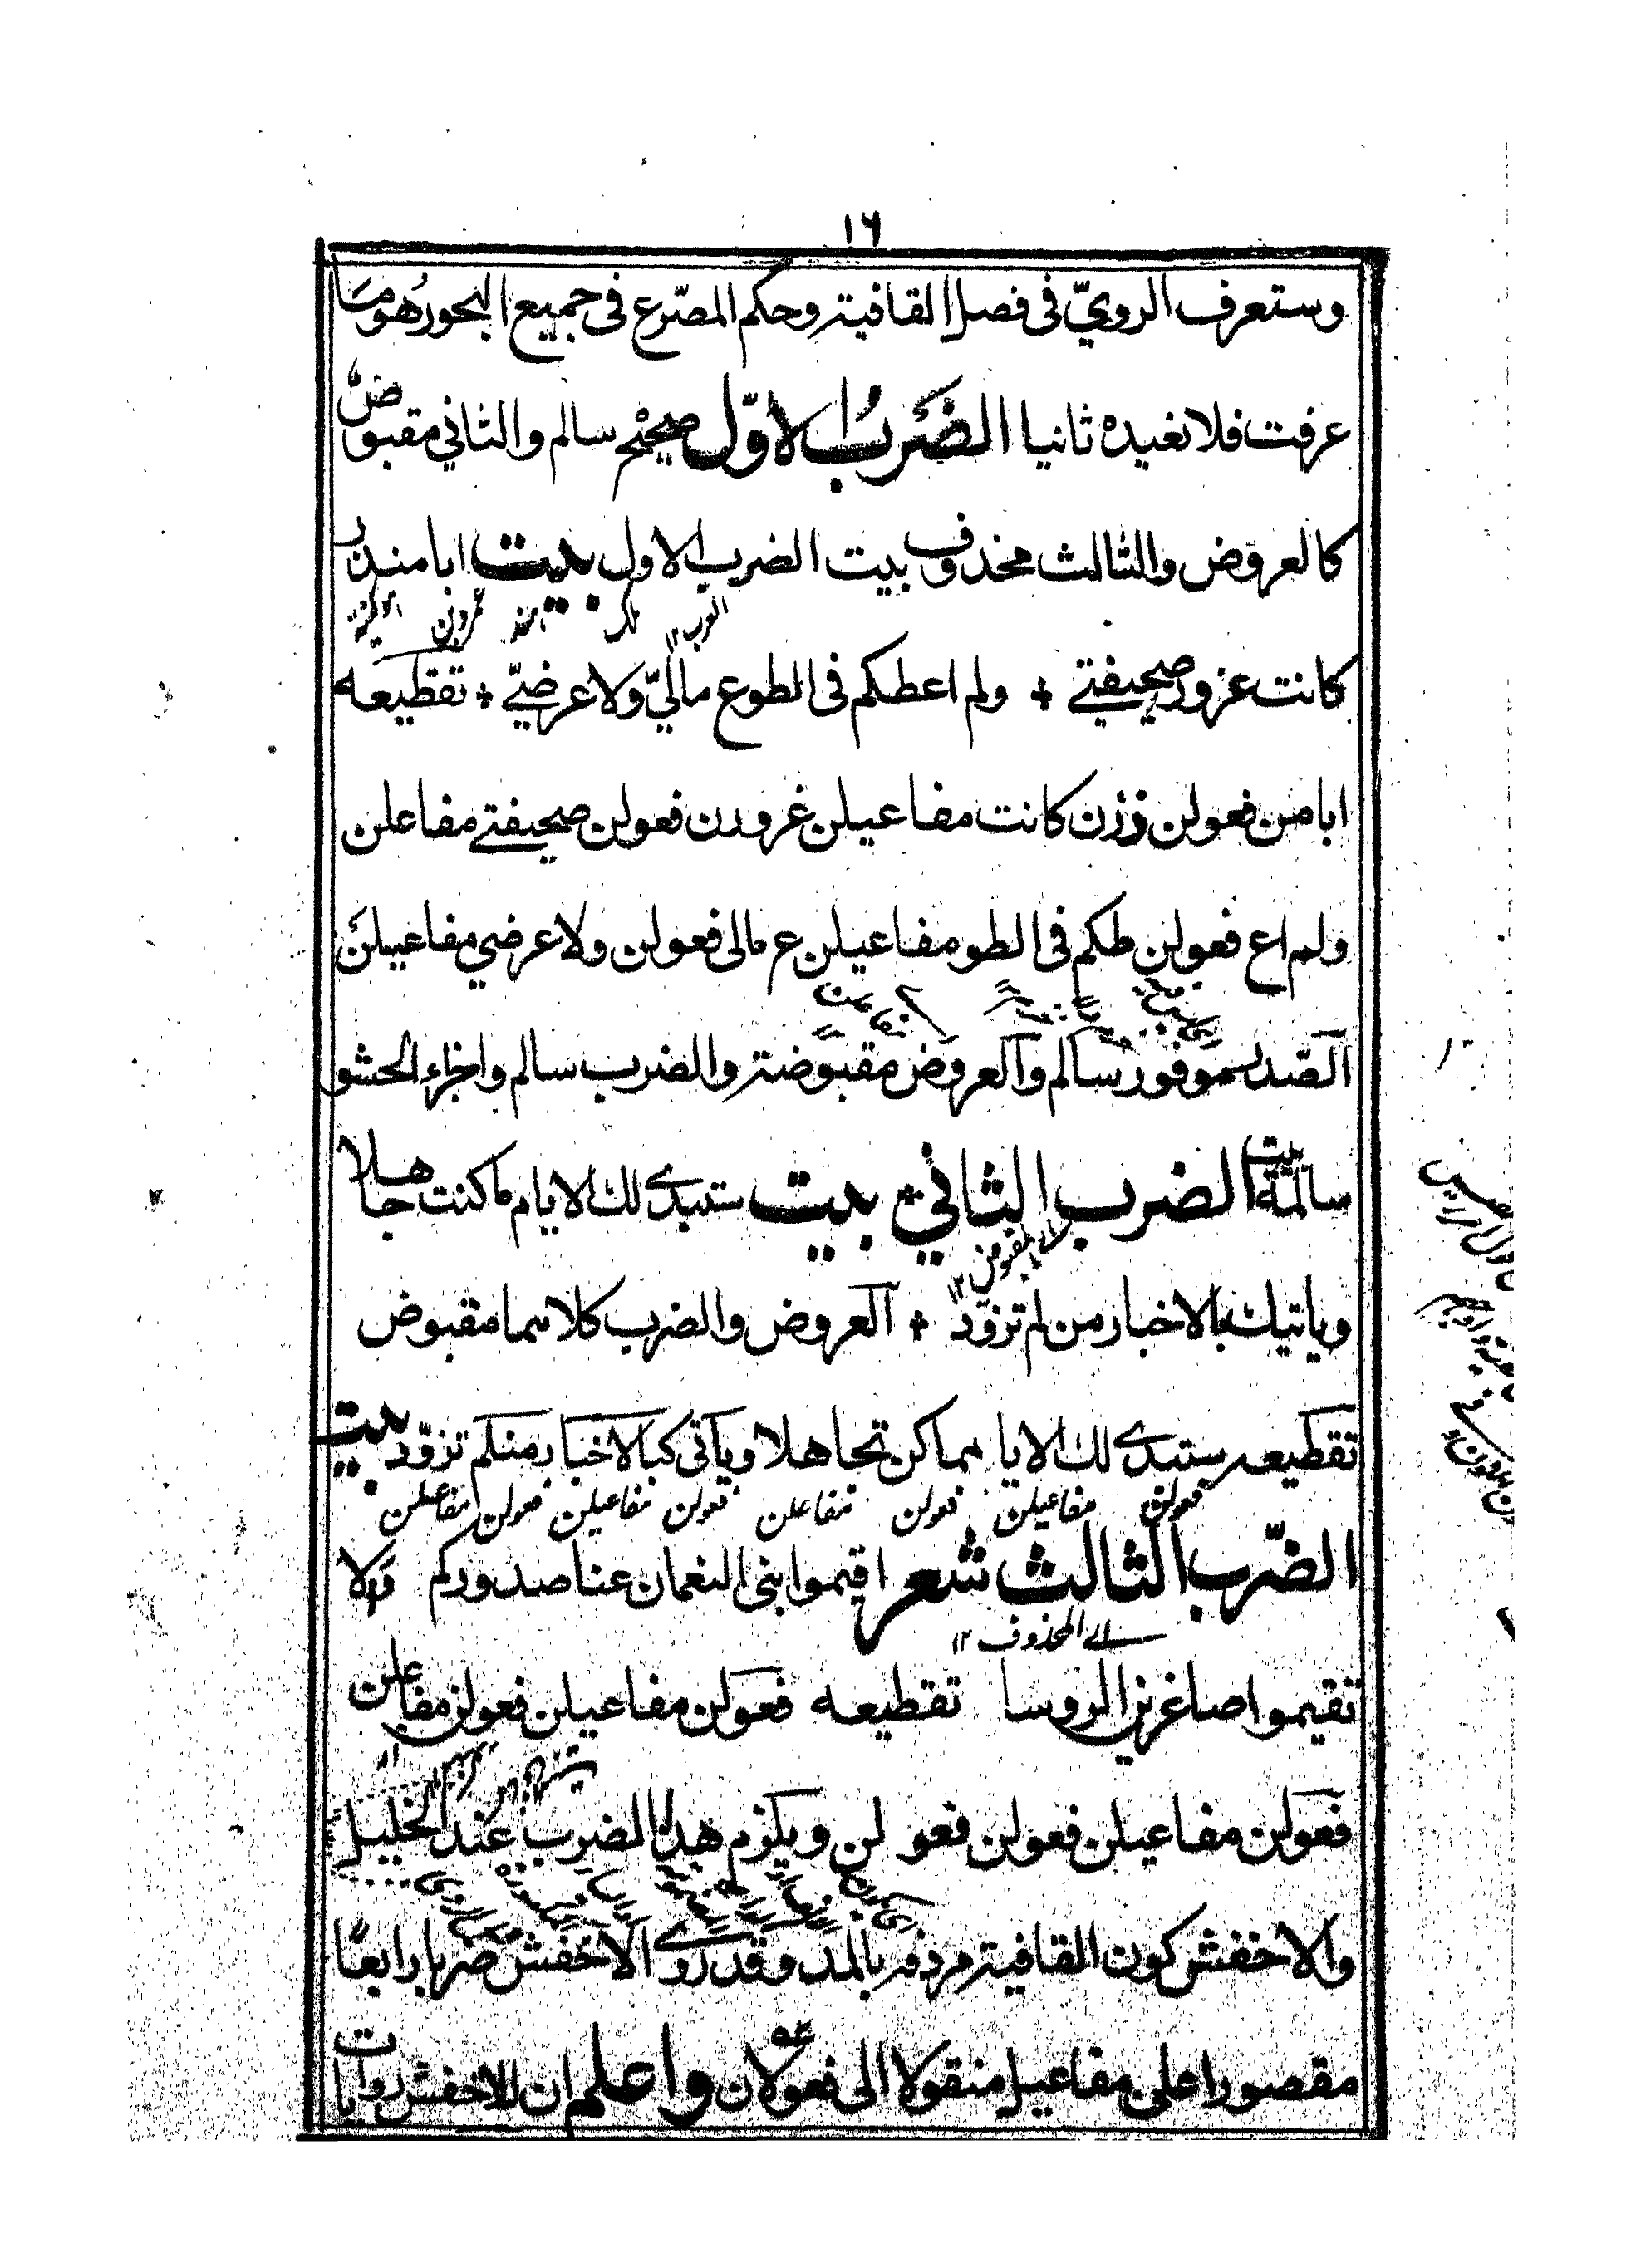 ١٦
وستعرف الرويّ فى فصل القافية وحكم المصرّع فى جميع البحور هو ما
عرفت فلا نعيده ثانيا الضَربُ الاوّل صحيحْ سالم والثاني مقبوضٌ
كالعروض والثالث محذوف بيت الضرب الاول بيت ابا منذر
كانت غرور صحيفتے + ولم اعطكم فى الطوع ماليّ ولا عرضيّے + تقطيعه
ابا من فعولن ذرن كانت مفاعيلن غرورن فعولن صحيفتے مفاعلن
ولم اع فعولن طكم فى الطو مفاعيلن ع مالى فعولن ولا عرضي مفاعيلن
الصّدر موفور سالم والعروض مقبوضة والضرب سالم واجزاء الحشو
سالمة بيت الضرب الثاني بيت ستبدى لك الايام ما كنت جاهلا
وياتيك بالاخبار من لم تزوّد + العروض والضرب كلاهما مقبوض
المقبوض ١٢
تقطيعه ستبدى لك الايا مماكن تجاهلا وياتى كبالاخبا رمنلم تزوّد بيت
فعولن مفاعيلن فعولن مفاعلن فعولن مفاعيلن فعولن مفاعلن
الضّرب الثالث شعر اقيموا بنى النعمان عنا صدوركم وّالا
اے المحذوف ١٢
تقيموا صاغرين الروسا تقطيعه فعولن مفاعيلن فعولن مفاعلن
فعولن مفاعيلن فعولن فعو لن ويلزم هذا الضرب عند الخليل
والاخفش كون القافية مردفه بالمد وقد روى الاخفش ضربا رابعًا
مقصورا على مفاعيل منقولا الى فعولان واعلم ان للاخفش روايات